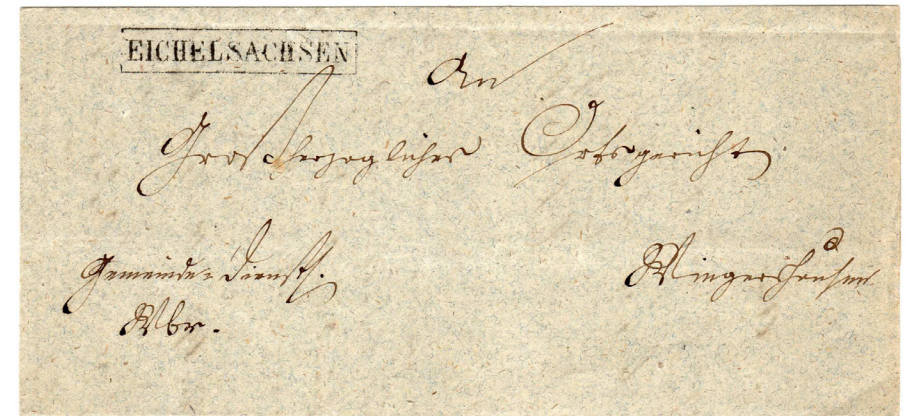 EICHELSACHSEN
An
Großherzogliches Ortsgericht
Gemeinde-Dienst s.
Wingershausen
Wbr.